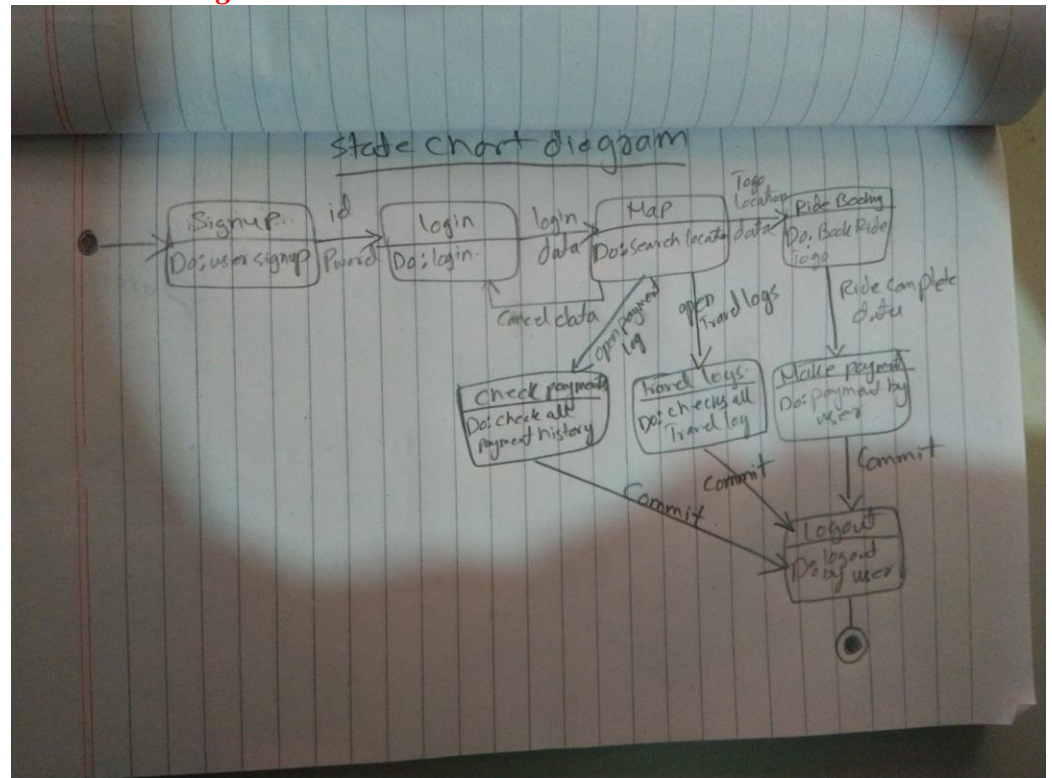 State chart diagram
Signup
Do: user signup
id
login
Do: login
login
data
Map
Do: search
Togo
Location
data
Ride
Do: Book Ride
Togo
Cancel data
open payment
log
open
Travel logs
Ride complete
data
Check payments
Do: check all
payment history
travel logs
Do: checks all
Travel log
Make payment
Do: payment by
user
Commit
Commit
Commit
Logout
Do: logout
by user